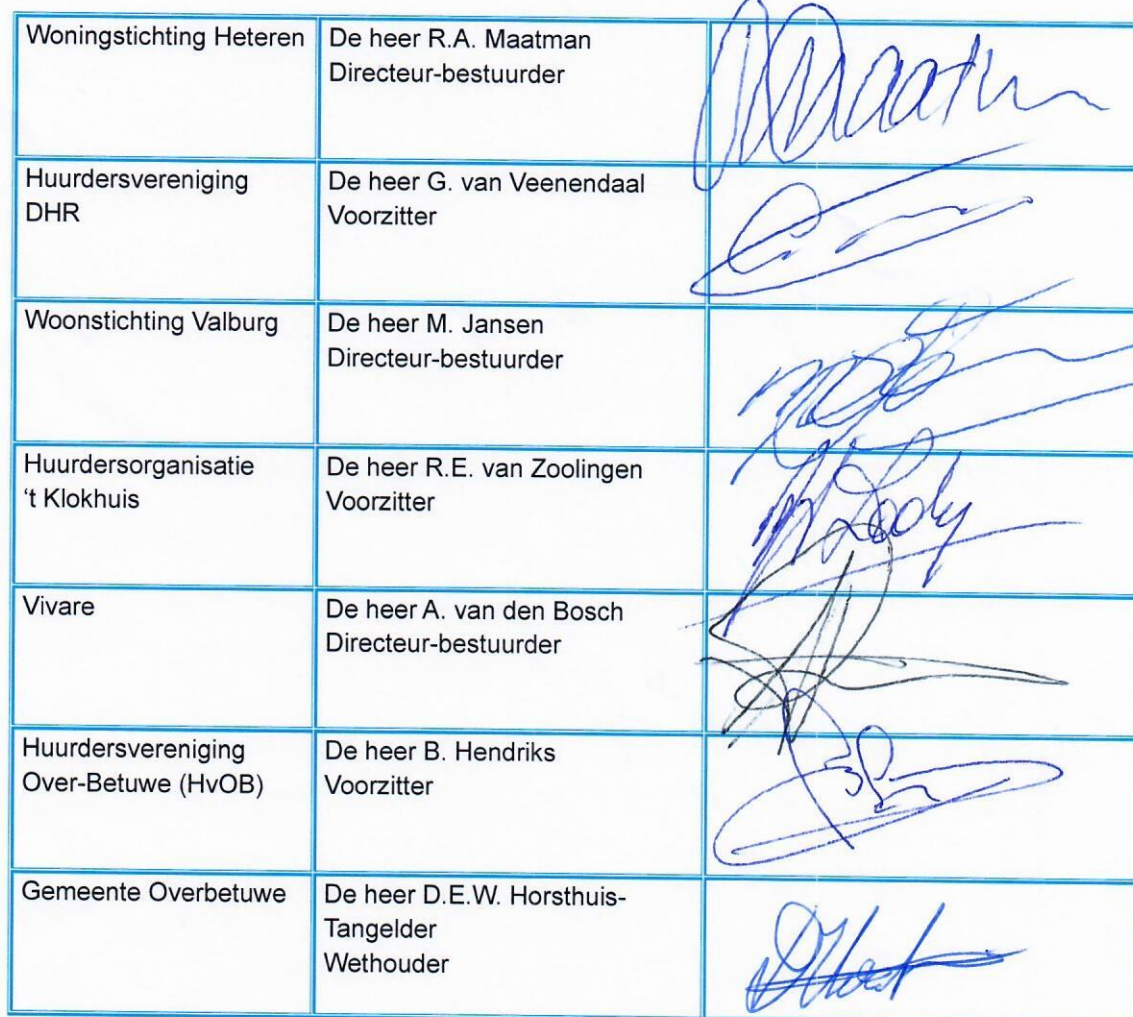 Woningstichting Heteren
De heer R.A. Maatman
Directeur-bestuurder
Huurdersvereniging
DHR
De heer G. van Veenendaal
Voorzitter
Woonstichting Valburg
De heer M. Jansen
Directeur-bestuurder
Huurdersorganisatie
‘t Klokhuis
De heer R.E. van Zoolingen
Voorzitter
Vivare
De heer A. van den Bosch
Directeur-bestuurder
Huurdersvereniging
Over-Betuwe (HvOB)
De heer B. Hendriks
Voorzitter
Gemeente Overbetuwe
De heer D.E.W. Horsthuis-
Tangelder
Wethouder